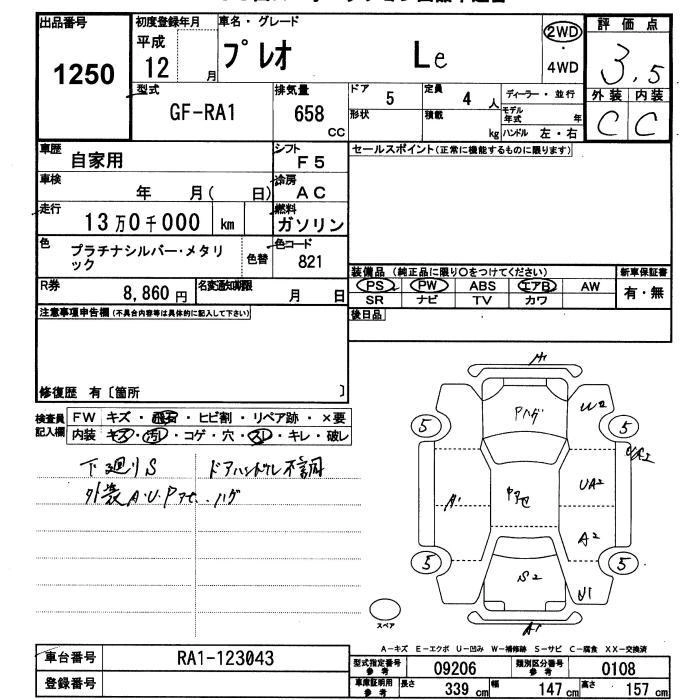 出品番号
1250
初度登録年月
平成
12 月
車名・グレード
プレオ Le
2WD
・
4WD
評価点
3.5
外装 内装
C C
型式
GF-RA1
排気量
658
CC
ドア
5
定員
4 人
形状
積載
kg
ディーラー・並行
モデル年式 年
ハンドル 左・右
車歴
自家用
シフト
F5
車検
年 月( 日)
冷房
AC
走行
13万0千000 km
燃料
ガソリン
色
プラチナシルバー・メタリック
色替
色コード
821
R券
8,860円
名変通知期限
月 日
セールスポイント(正常に機能するものに限ります)
装備品 (純正品に限り○をつけてください)
PS PW ABS エアB AW
SR ナビ TV カワ
新車保証書
有・無
後日品
注意事項申告欄(不具合内容等は具体的に記入して下さい)
修復歴 有〔箇所 〕
検査員記入欄
FW キズ・飛石・ヒビ割・リペア跡・×要
内装 キズ・汚レ・コゲ・穴・スレ・キレ・破レ
下廻りS ドアハンドル不調
外装A.U.Pアセ、ハゲ
Pハゲ
W2
5 5
A1
Pアセ
UA2
A2
5 5
S2
U1
A1
スペア
A-キズ E-エクボ U-凹み W-補修跡 S-サビ C-腐食 XX-交換済
車台番号
RA1-123043
登録番号
型式指定番号参考
09206
類別区分番号参考
0108
車庫証明用参考
長さ 339 cm
幅 147 cm
高さ 157 cm